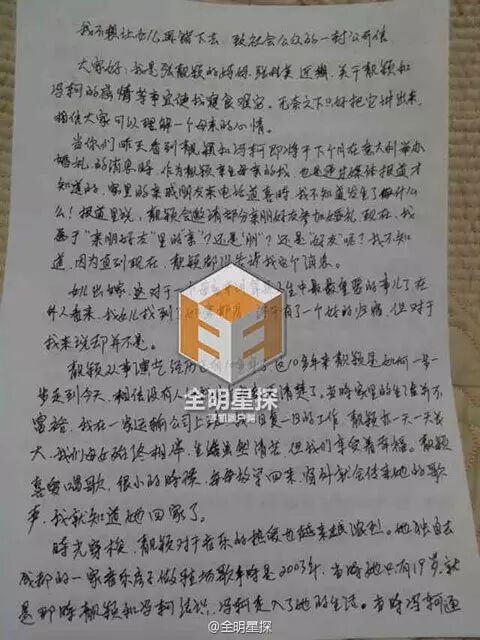 我不想让女儿再错下去 致社会公众的一封公开信
大家好，我是张靓颖的妈妈，张桂英。近期，关于靓颖和
冯柯的感情等事宜使我寝食难安。无奈之下只好把它讲出来，
相信大家可以理解一个母亲的心情。
当你们昨天看到靓颖和冯柯即将于下个月在意大利举办
婚礼的消息时，作为靓颖亲生母亲的我，也是通过媒体报道才
知道的，家里的亲戚朋友来电话道喜时，我不知道发生了什
么！报道里说，靓颖会邀请部分亲朋好友参加婚礼，现在，我
属于“亲朋好友”里的“亲”？还是“朋”？还是“好友”呢？我不知
道，因为直到现在，靓颖都没告诉我这个消息。
女儿出嫁，这对于一个母亲 生中最重要的事儿了，在
外人看来，我女儿找到了 有了一个好的归宿，但对于
我来说却并不是。
靓颖从事演艺 这10多年来靓颖是如何一步一
步走到今天，相信没有人 清楚了。当时家里的生活并不
富裕，我在一家运输公司上 日复一日的工作，靓颖亦一天一天长
大，我们母女始终相伴，生活虽然清苦，但我们享受着幸福。靓颖
喜爱唱歌，很小的时候，每每放学回来，窗外就会传来她的歌
声，我就知道她回家了。
时光穿梭，靓颖对于音乐的热爱也越来越浓烈。她独自去
成都的一家音乐房子做驻场歌手时是2003年，当时她只有19岁，就
是那时靓颖和冯柯结识，冯柯走入了她的生活。当时冯柯通
全明星探
@全明星探